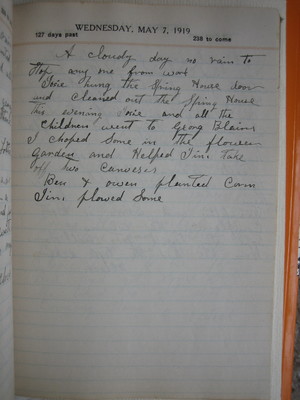 WEDNESDAY, MAY 7, 1919
127 days past 238 to come
A cloudy day no rain to
stop any one from work
hung the Spring House door
and Cleaned out the Spring House
this evening and all the
Children went to Georg Blains
I choped Some in the flower
Garden and Helped Jim take
off two Canveses
Ben & owen planted Corn
Jim plowed Some